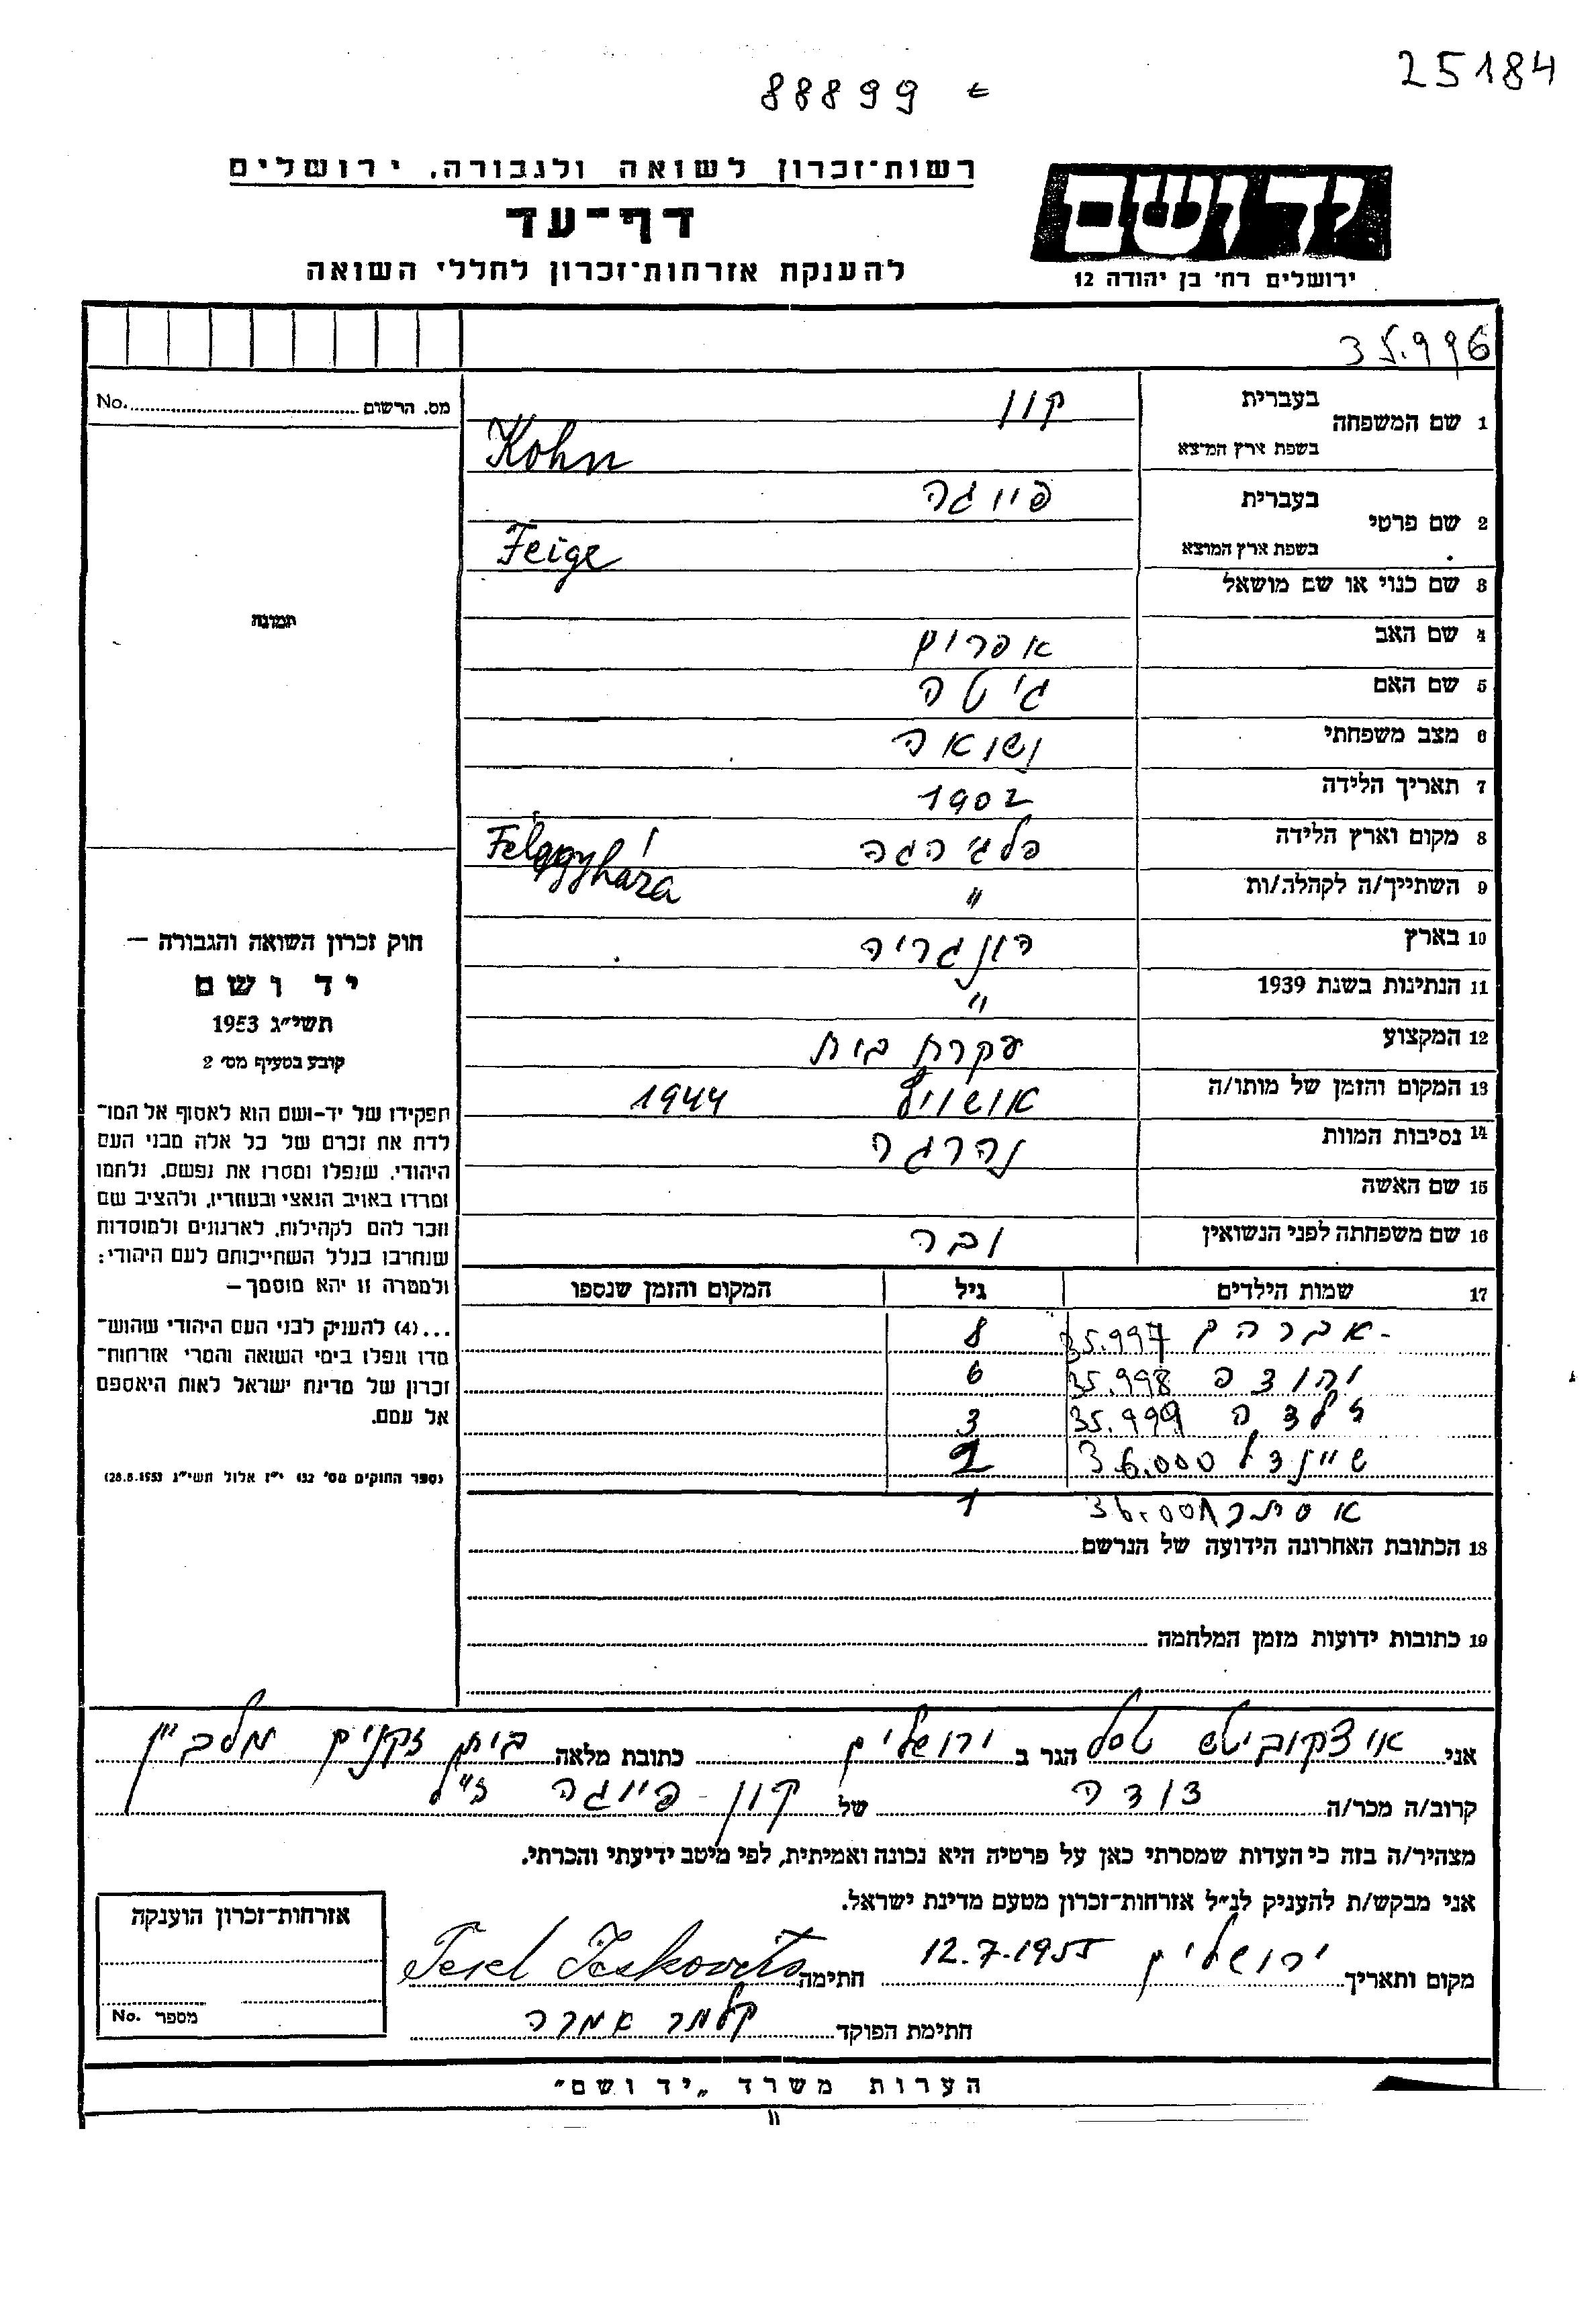 25184
88899 =
רשות־זכרון לשואה ולגבורה, ירושלים
יד ושם
דף־עד
להענקת אזרחות־זכרון לחללי השואה
ירושלים רח׳ בן יהודה 12
35.996
מס. הרשום No.
1 שם המשפחה בעברית קון
בשפת ארץ המוצא Kohn
2 שם פרטי בעברית פייגה
בשפת ארץ המוצא Feige
3 שם כנוי או שם מושאל
תמונה
4 שם האב אפרים
5 שם האם גיטה
6 מצב משפחתי נשואה
7 תאריך הלידה 1902
8 מקום וארץ הלידה פלגיהגה Felgyháza
9 השתייך/ה לקהלה/ות "
10 בארץ הונגריה
11 הנתינות בשנת 1939 "
12 המקצוע עקרת בית
13 המקום והזמן של מותו/ה אושוויץ 1944
14 נסיבות המוות נהרגה
15 שם האשה
16 שם משפחתה לפני הנשואין ובר
17 שמות הילדים גיל המקום והזמן שנספו
אברהם 35.997 8
יהודה 35.998 6
זלדה 35.999 3
שיינדל 36.000 2
אסתר 36.001 1
18 הכתובת האחרונה הידועה של הנרשם
19 כתובות ידועות מזמן המלחמה
חוק זכרון השואה והגבורה –
יד ושם
תשי״ג 1953
קובע בסעיף מס׳ 2
תפקידו של יד־ושם הוא לאסוף אל המו־
לדת את זכרם של כל אלה מבני העם
היהודי, שנפלו ומסרו את נפשם, נלחמו
ומרדו באויב הנאצי ובעוזריו, ולהציב שם
וזכר להם לקהילות, לארגונים ולמוסדות
שנחרבו בגלל השתייכותם לעם היהודי;
ולמטרה זו יהא מוסמך –
...(4) להעניק לבני העם היהודי שהוש־
מדו ונפלו בימי השואה והמרי אזרחות־
זכרון של מדינת ישראל לאות היאספם
אל עמם.
(ספר החוקים מס׳ 132 י״ז אלול תשי״ג 28.8.1953)
אני איצקוביטש טסל הגר ב ירושלים כתובת מלאה בית זקנים מלבין
קרוב/ה מכר/ה דודה של קון פייגה ז״ל
מצהיר/ה בזה כי העדות שמסרתי כאן על פרטיה היא נכונה ואמיתית, לפי מיטב ידיעתי והכרתי.
אני מבקש/ת להעניק לנ״ל אזרחות־זכרון מטעם מדינת ישראל.
מקום ותאריך ירושלים 12.7.1955 חתימה Tesel Icskovits
חתימת הפוקד קלמר אמרה
אזרחות־זכרון הוענקה
מספר No.
הערות משרד „יד ושם״